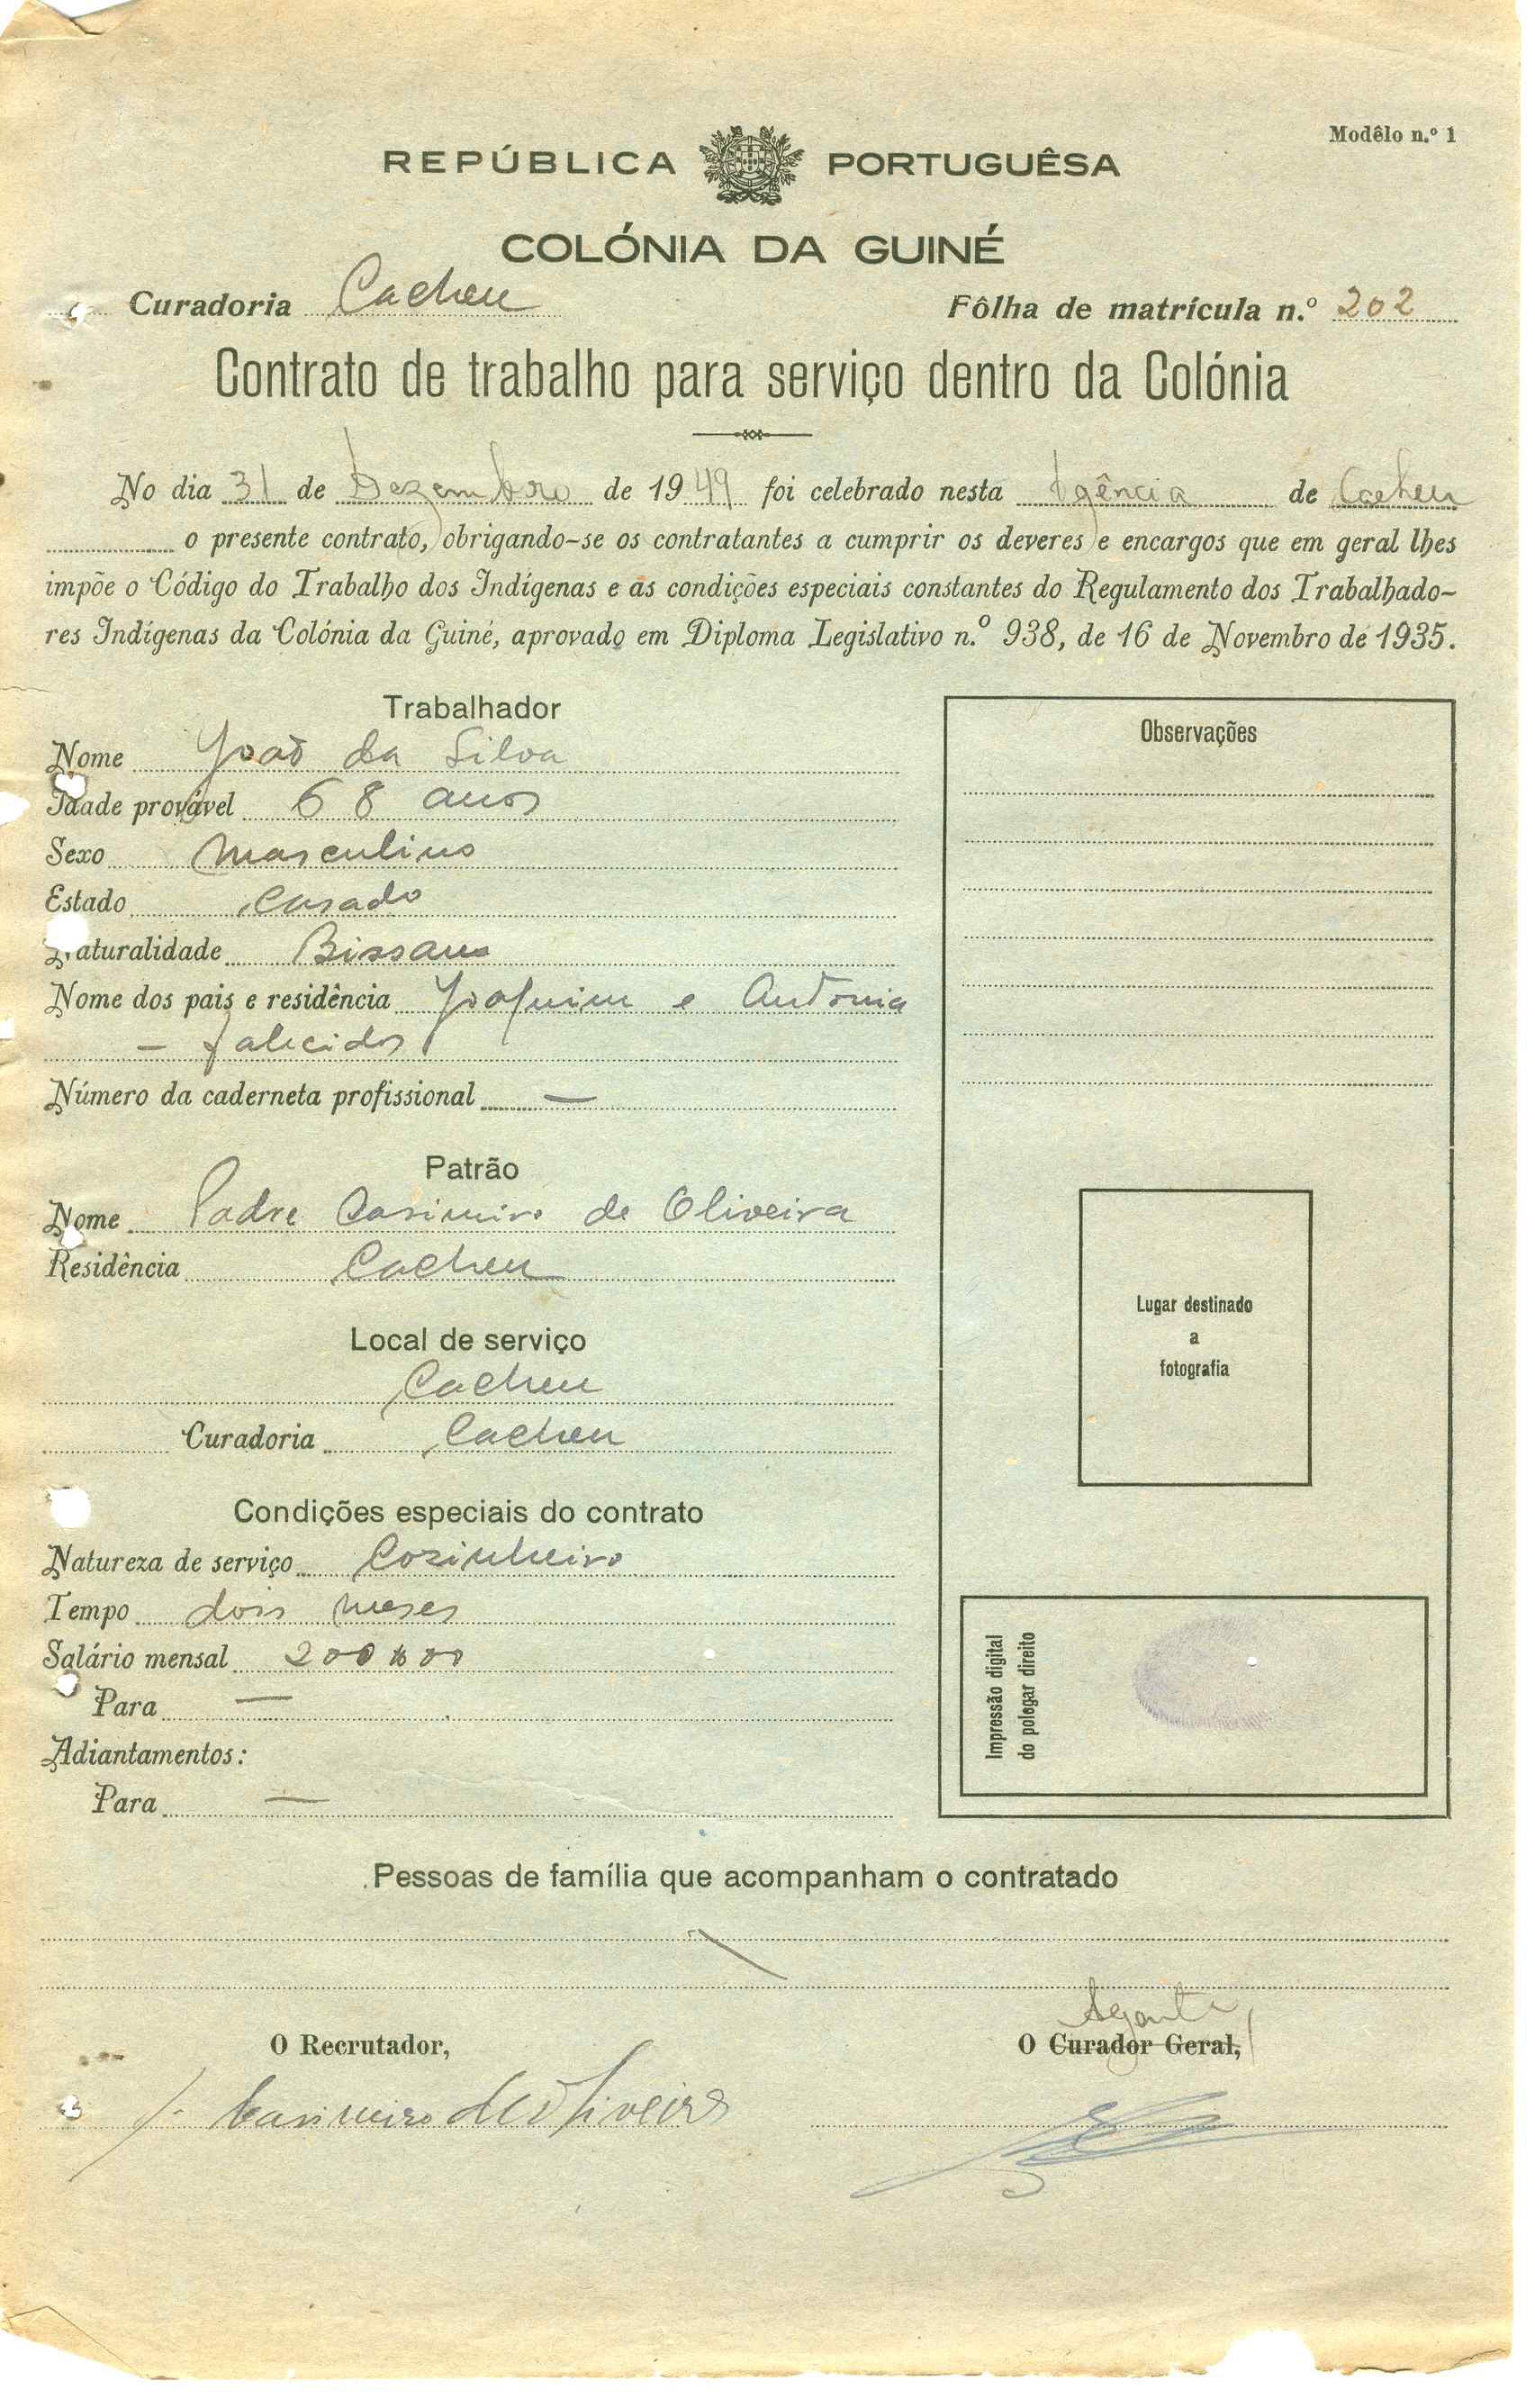 Modêlo n.º 1
REPÚBLICA PORTUGUÊSA
COLÓNIA DA GUINÉ
Curadoria Cacheu Fôlha de matrícula n.º 202
Contrato de trabalho para serviço dentro da Colónia
No dia 31 de Dezembro de 1949 foi celebrado nesta Agência de Cacheu
o presente contrato, obrigando-se os contratantes a cumprir os deveres e encargos que em geral lhes
impõe o Código do Trabalho dos Indígenas e as condições especiais constantes do Regulamento dos Trabalhado-
res Indígenas da Colónia da Guiné, aprovado em Diploma Legislativo n.º 938, de 16 de Novembro de 1935.
Trabalhador
Nome João da Silva
Idade provável 68 anos
Sexo Masculino
Estado Casado
Naturalidade Bissau
Nome dos pais e residência Joaquim e Antonia
- falecidos
Número da caderneta profissional —
Patrão
Nome Padre Casimiro de Oliveira
Residência Cacheu
Local de serviço
Cacheu
Curadoria Cacheu
Condições especiais do contrato
Natureza de serviço Cosinheiro
Tempo dois meses
Salário mensal 200$00
Para —
Adiantamentos:
Para —
Observações
Lugar destinado
a
fotografia
Impressão digital
do polegar direito
Pessoas de família que acompanham o contratado
O Recrutador,
Casimiro de Oliveira
Agente
O Curador Geral,